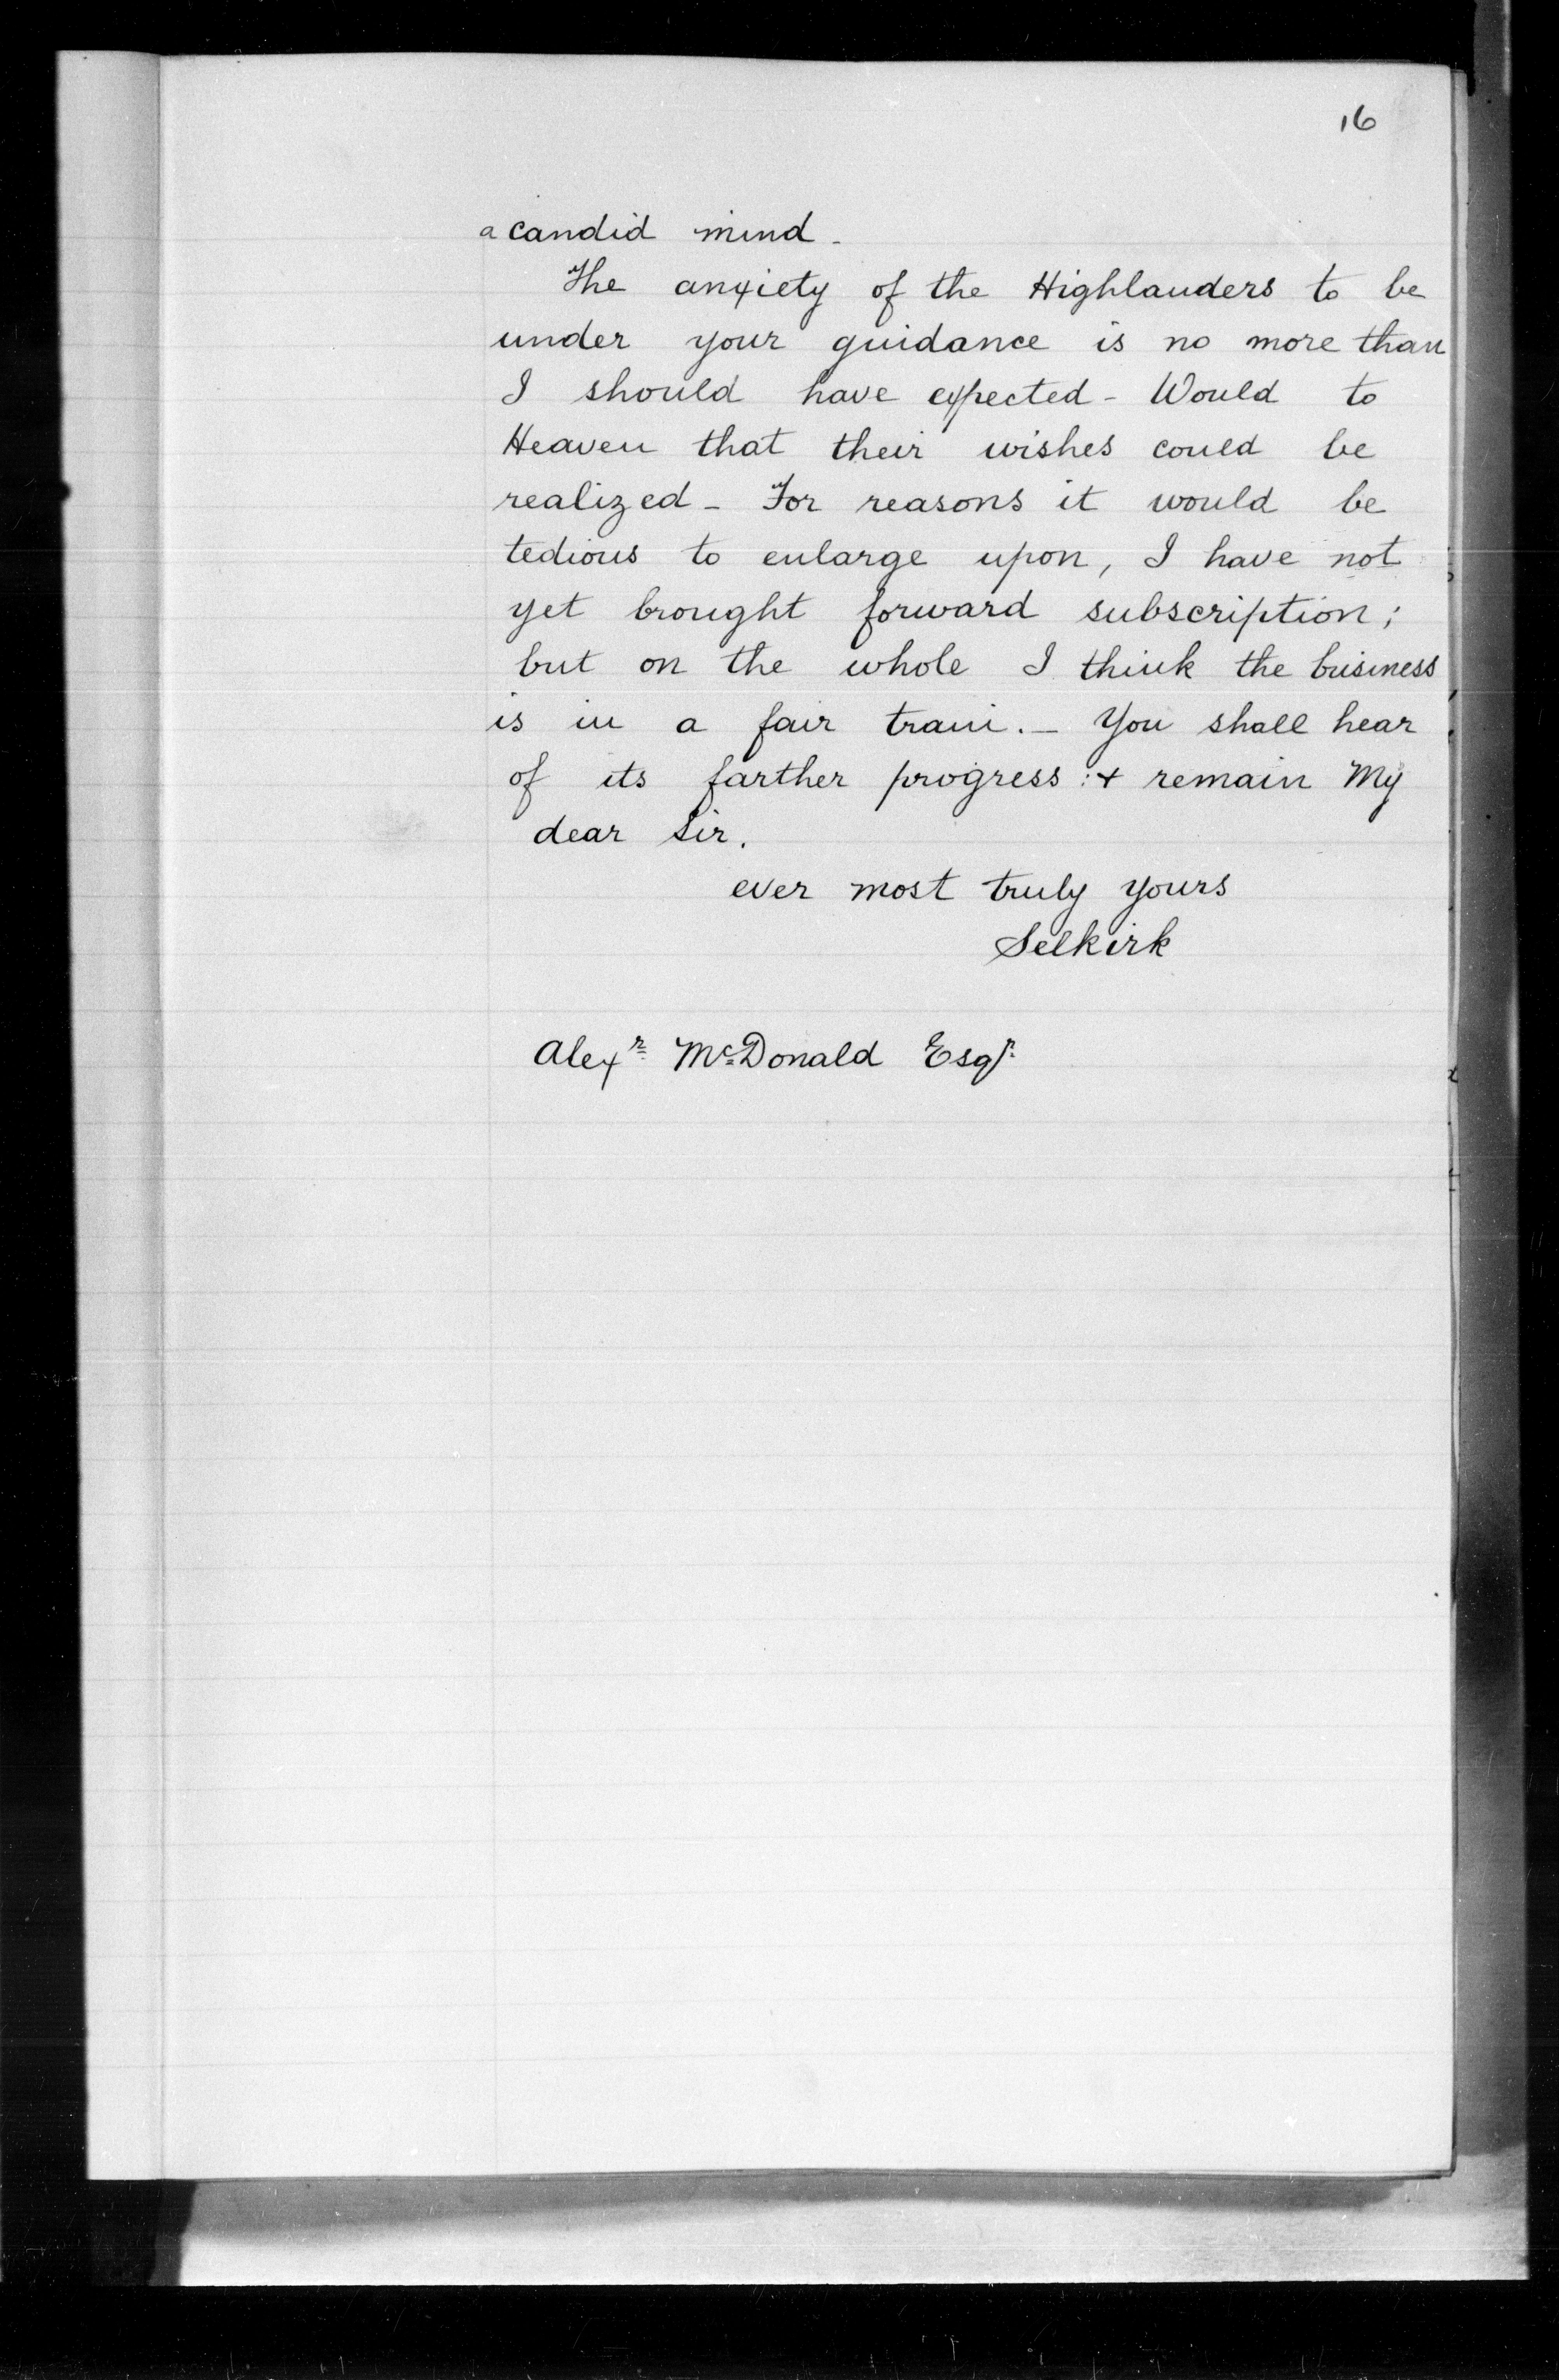 16
a candid mind -
The anxiety of the Highlanders to be
under your guidance is no more than
I should have expected - Would to
Heaven that their wishes could be
realized - For reasons it would be
tedious to enlarge upon, I have not
yet brought forward subscription;
but on the whole I think the business
is in a fair train. - You shall hear
of its farther progress: & remain My
dear Sir.
ever most truly yours
Selkirk
Alexr McDonald Esqr